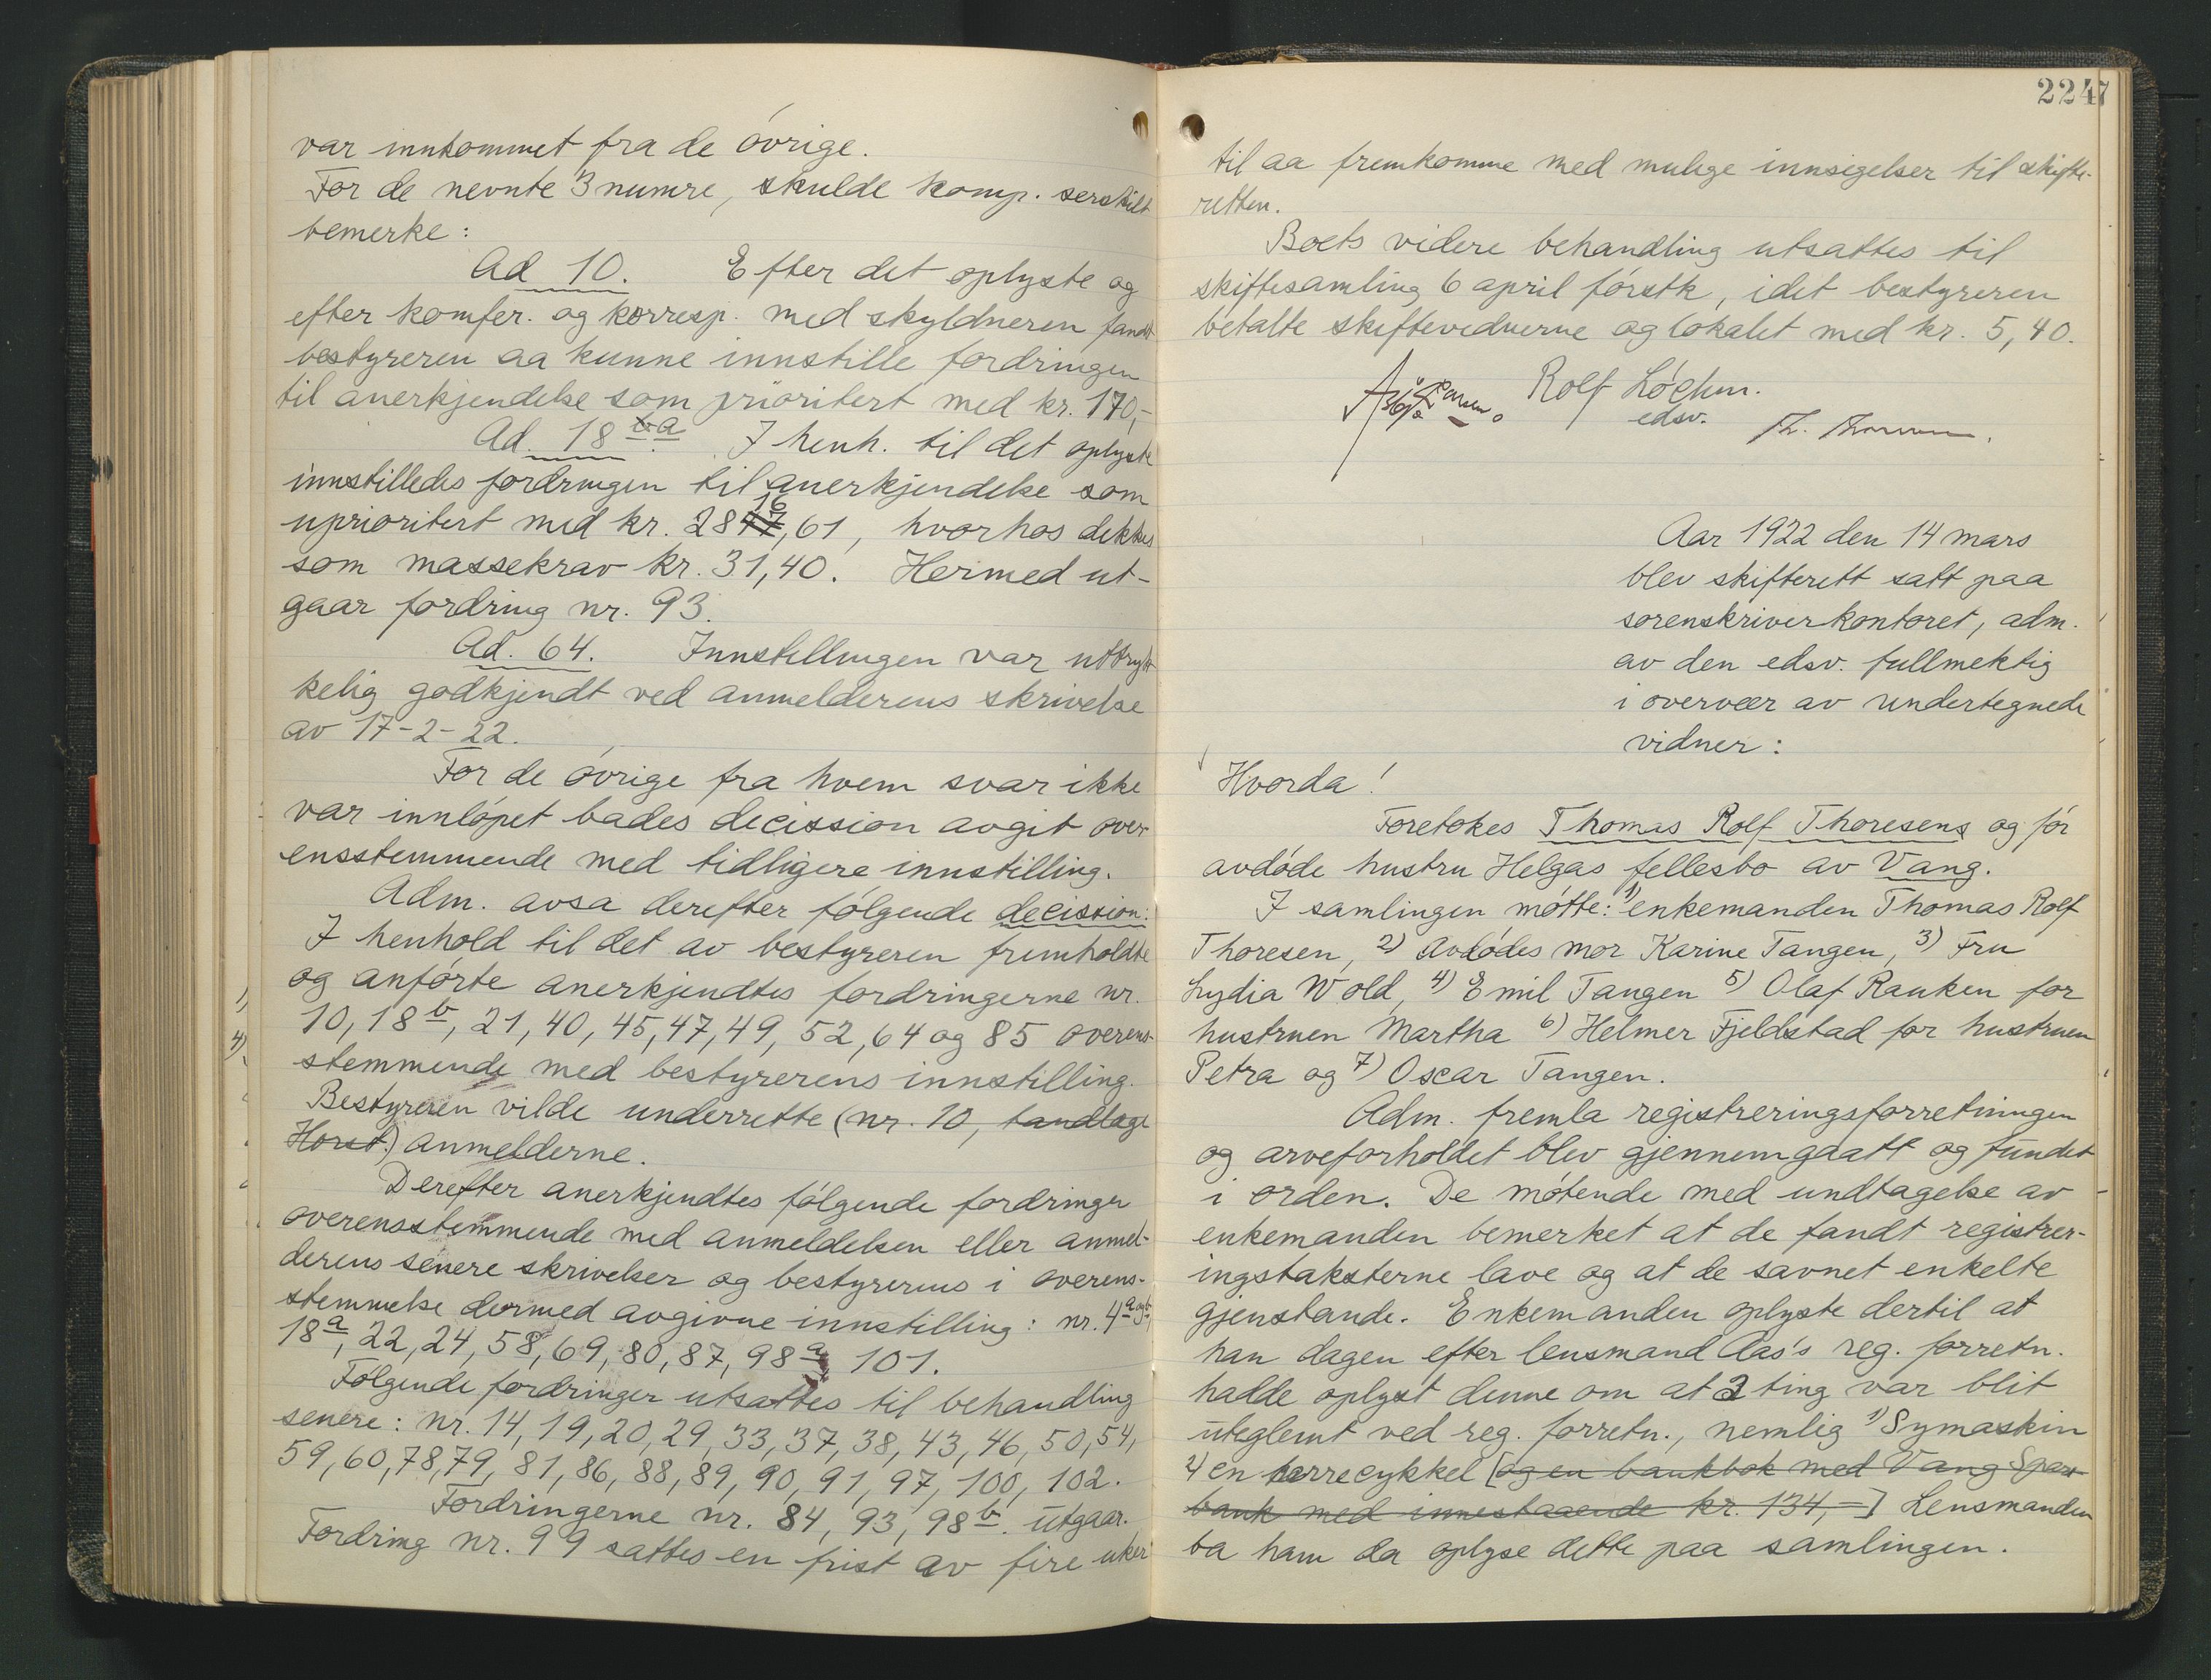 var innkommet fra de óvrige.
For de nevnte 3 numre, skulde komp. serskilt
bemerke:
Ad 10. Efter det oplyste og
efter konfer. og korresp. med skyldneren fandt
bestyreren aa kunne innstille fordringen
til anerkjendelse som prioritert med kr. 170,-
Ad. 18 a I henh. til det oplyste
innstilledes fordringen til anerkjendelse som
uprioritert med kr. 2816,61, hvorhos dekkes
som massekrav kr. 31,40. Hermed ut-
gaar fordring nr. 93.
Ad. 64. Innstillingen var uttryk-
kelig godkjendt ved anmelderens skrivelse
av 17-2-22.
For de óvrige fra hvem svar ikke
var innlópet bades decission avgit over-
ensstemmende med tidligere innstilling.
Adm. avsa derefter fólgende decission:
I henhold til det av bestyreren fremholdte
og anfórte anerkjendtes fordringerne nr.
10, 18 b, 21, 40, 45, 47, 49, 52, 64 og 85 overens-
stemmende med bestyrerens innstilling.
Bestyreren vilde underrette (nr. 10, tandlæge
Horst.) anmelderne.
Derefter anerkjendtes fólgende fordringer
overensstemmende med anmeldelsen eller anmel-
derens senere skrivelser og bestyrerens i overens-
stemmelse dermed avgivne innstilling: nr. 4 a og b,
18 a, 22, 24, 58, 69, 80, 87, 98 a, 101.
Fólgende fordringer utsattes til behandling
senere: nr. 14, 19, 20, 29, 33, 37, 38, 43, 46, 50, 54,
59, 60, 78, 79, 81, 86, 88, 89, 90, 91, 97, 100, 102.
Fordringerne nr. 84, 93, 98 b. utgaar.
Fordring nr. 99 sattes en frist av fire uker
224
til aa fremkomme med mulige innsigelser til skifte-
retten.
Boets videre behandling utsattes til
skiftesamling 6 april fórstk, idet bestyreren
betalte skiftevidnerne og lokalet med kr. 5,40.
Rolf Lóchen.
edsv.
Aar 1922 den 14 mars
blev skifterett satt paa
sorenskriverkontoret, adm.
av den edsv. fullmektig
i overvær av undertegnede
vidner:
Hvorda!
Foretokes Thomas Rolf Thoresens og fór
avdóde hustru Helgas fellesbo av Vang.
I samlingen mótte: 1) enkemanden Thomas Rolf
Thoresen, 2) avdódes mor Karine Tangen, 3) Fru
Lydia Wold, 4) Emil Tangen 5) Olaf Rauken for
hustruen Martha 6) Helmer Fjeldstad for hustruen
Petra og 7) Oscar Tangen.
Adm. fremla registreringsforretningen
og arveforholdet blev gjennemgaatt og fundet
i orden. De mótende med undtagelse av
enkemanden bemerket at de fandt registrer-
ingstaksterne lave og at de savnet enkelte
gjenstande. Enkemanden oplyste dertil at
han dagen efter lensmand Aas's reg. forretn.
hadde oplyst denne om at 2 ting var blit
uteglemt ved reg. forretn., nemlig 1) Symaskin
2) en herrecykkel [og en bankbok med Vang Spare-
bank med innestaaende kr. 134,-] Lensmanden
ba ham da oplyse dette paa samlingen.